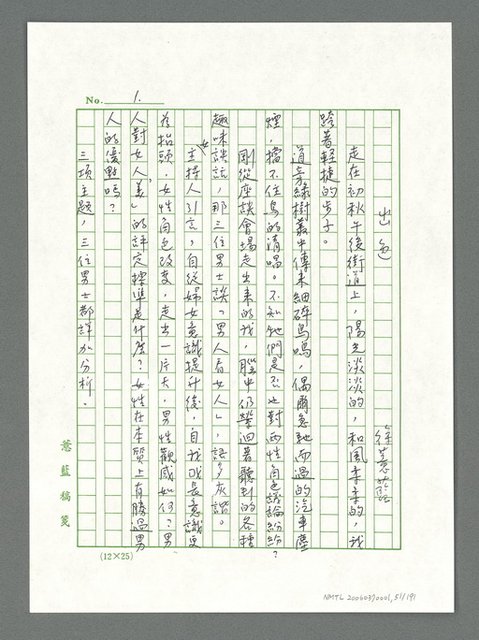 No. 1.
出色
徐蕙藍
走在初秋午後街道上，陽光淡淡的，和風輕輕的，我
跨著輕捷的步子。
道旁綠樹叢中傳來細碎鳥鳴，偶爾急馳而過的汽車塵
煙，擋不住鳥的清唱。不知牠們是否也對兩性角色議論紛紛？
剛從座談會場走出來的我，腦中仍縈迴著聽到的各種
趣味談話，那三位男士談「男人看女人」，語多灰諧。
女主持人引言，自從婦女意識提升後，自我成長意識更
為抬頭，女性角色改變，走出一片天，男性觀感如何？男
人對女人「美」的評定標準是什麼？女性在本質上有勝過男
人的優點嗎？
三項主題，三位男士都詳加分析。
蕙藍稿箋
(12×25)
NMTL 20060390001, 51/191